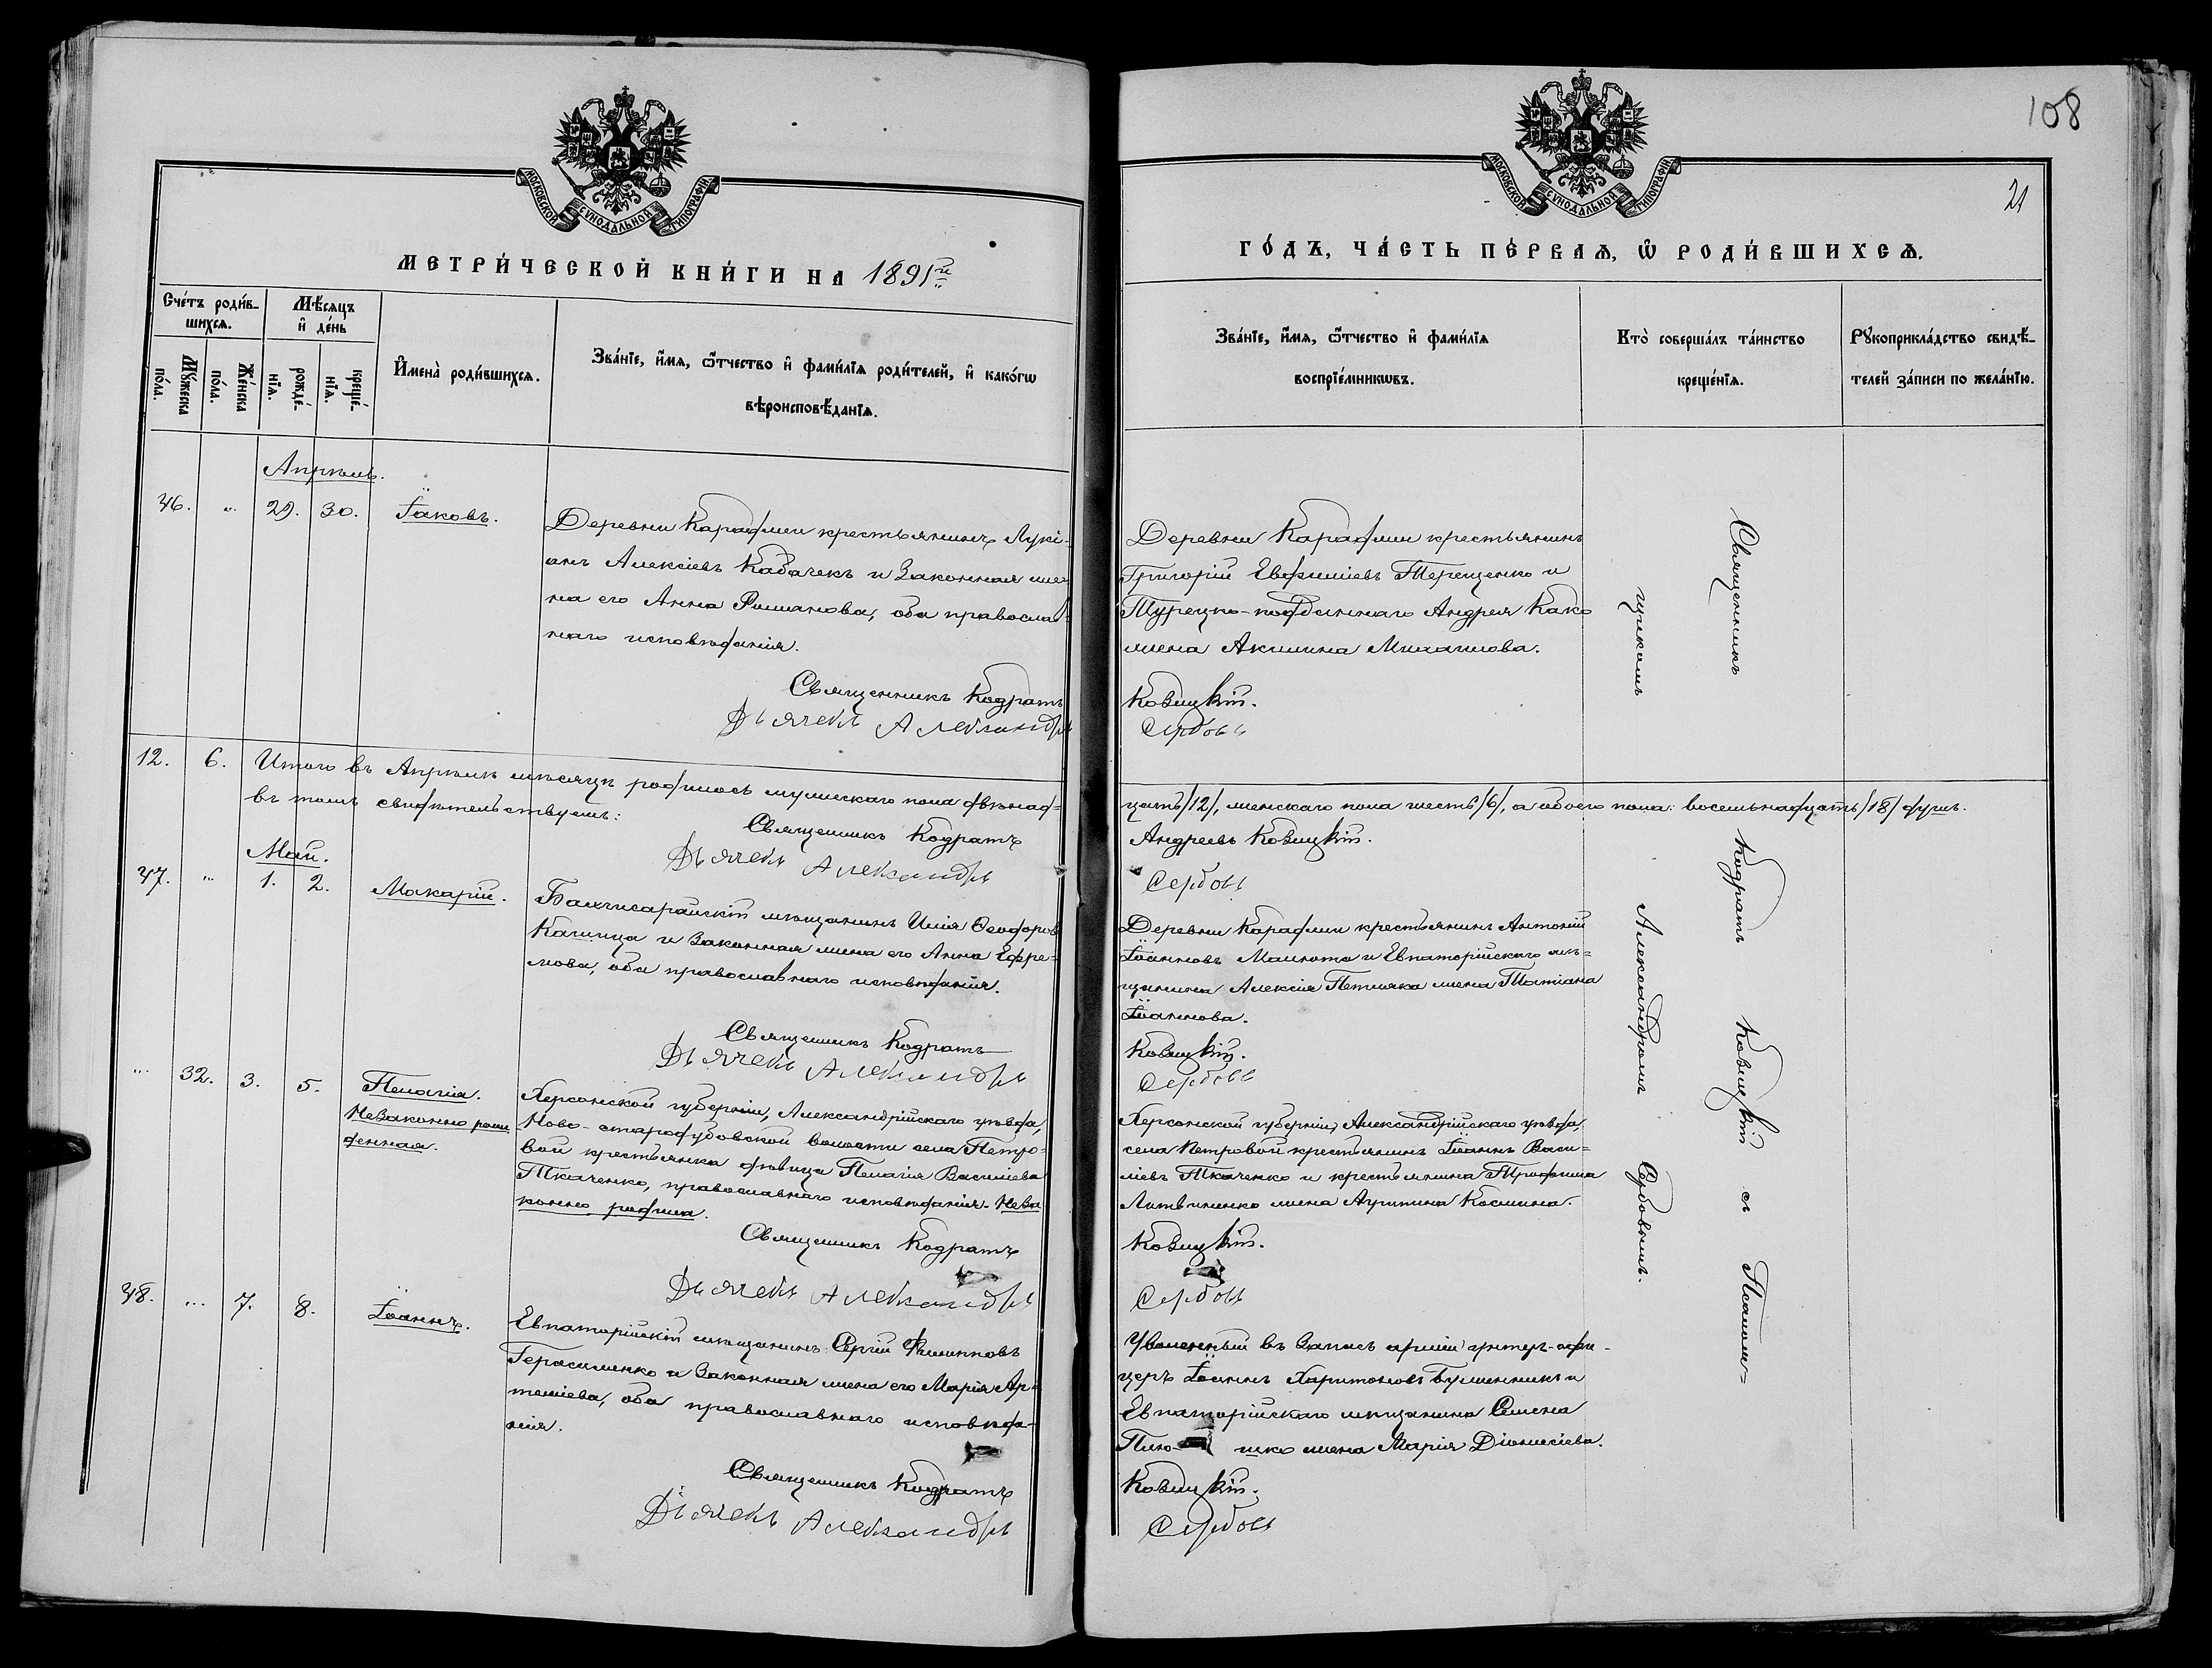 108
21
МОСКОВСКОЙ СУНОДАЛЬНОЙ ТИПОГРАФІИ
МОСКОВСКОЙ СУНОДАЛЬНОЙ ТИПОГРАФІИ
МЕТРИ́ЧЕСКОЙ КНИ́ГИ НА 1891й
ГО́ДЪ, ЧА́СТЬ ПЕ́РВАѦ, Ѽ РОДИ́ВШИХСѦ.
Сче́тъ роди́в-
шихсѧ.
Мѣ́сѧцъ
и҆ де́нь
Мꙋ́жеска
по́ла.
Же́нска
по́ла.
рожде́-
нїѧ.
креще́-
нїѧ.
И҆мена̀ роди́вшихсѧ.
Зва́нїе, и҆́мѧ, ѻ҆́тчество и҆ фами́лїѧ роди́телей, и҆ како́гѡ
вѣроисповѣ́данїѧ.
Зва́нїе, и҆́мѧ, ѻ҆́тчество и҆ фами́лїѧ
воспрїе́мникѡвъ.
Кто̀ соверша́лъ та́инство
креще́нїѧ.
Рꙋкоприкла́дство свидѣ́-
телей за́писи по жела́нїю.
Апрѣль.
46. „ 29. 30. Іаковъ.
Деревни Караджи крестьянинъ Лукі-
анъ Алексіевъ Кабачекъ и законная же-
на его Анна Романова, оба православ-
наго исповѣданія.
Священникъ Кодратъ
Дьячекъ Александръ
Деревни Караджи крестьянинъ
Григорій Евфиміевъ Терещенко и
Турецко-подданнаго Андрея Како
жена Акилина Михаилова.
Ковицкій.
Сербовъ
12. 6. Итого въ Апрѣлѣ мѣсяцѣ родилось мужескаго пола двѣнад-
цать/12/, женскаго пола шесть/6/, а обоего пола: восемьнадцать/18/ душъ.
въ томъ свидѣтельствуемъ:
Священникъ Кодратъ
Андреевъ Ковицкій.
Дьячекъ Александръ
Сербовъ
Май.
47. „ 1. 2. Макарій.
Бахчисарайскій мѣщанинъ Илія Ѳеодоровъ
Капица и законная жена его Анна Ефре-
мова, оба православнаго исповѣданія.
Священникъ Кодратъ
Дьячекъ Александръ
Деревни Караджи крестьянинъ Антоній
Іоанновъ Малюта и Евпаторійскаго мѣ-
щанина Алексія жена Татіана
Іоаннова.
Ковицкій.
Сербовъ
„ 32. 3. 5. Пелагія.
Незаконно рож-
денная.
Херсонской губерніи, Александрійскаго уѣзда,
Ново-стародубовской волости села Петро-
вой крестьянка дѣвица Пелагія Василіева
Ткаченко, православнаго исповѣданія. Неза
конно родила.
Священникъ Кодратъ
Дьячекъ Александръ
Херсонской губерніи, Александрійскаго уѣзда
села Петровой крестьянинъ Іоаннъ Васи-
ліевъ Ткаченко и крестьянина Трофима
Литвиненко жена Космина.
Ковицкій.
Сербовъ
48. „ 7. 8. Іоаннъ.
Евпаторійскій мѣщанинъ Сергій Филипповъ
Герасименко и законная жена его Марія Ар-
теміева, оба православнаго исповѣда-
нія.
Священникъ Кодратъ
Дьячекъ Александръ
Уволенный въ запасъ арміи унтеръ-офи-
церъ Іоаннъ Харитоновъ и
Евпаторійскаго мѣщанина Семена
жена Марія Діонисіева.
Ковицкій.
Сербовъ
Священникъ Кодратъ Ковицкій съ Псалом-
щикомъ Александромъ Сербовымъ.